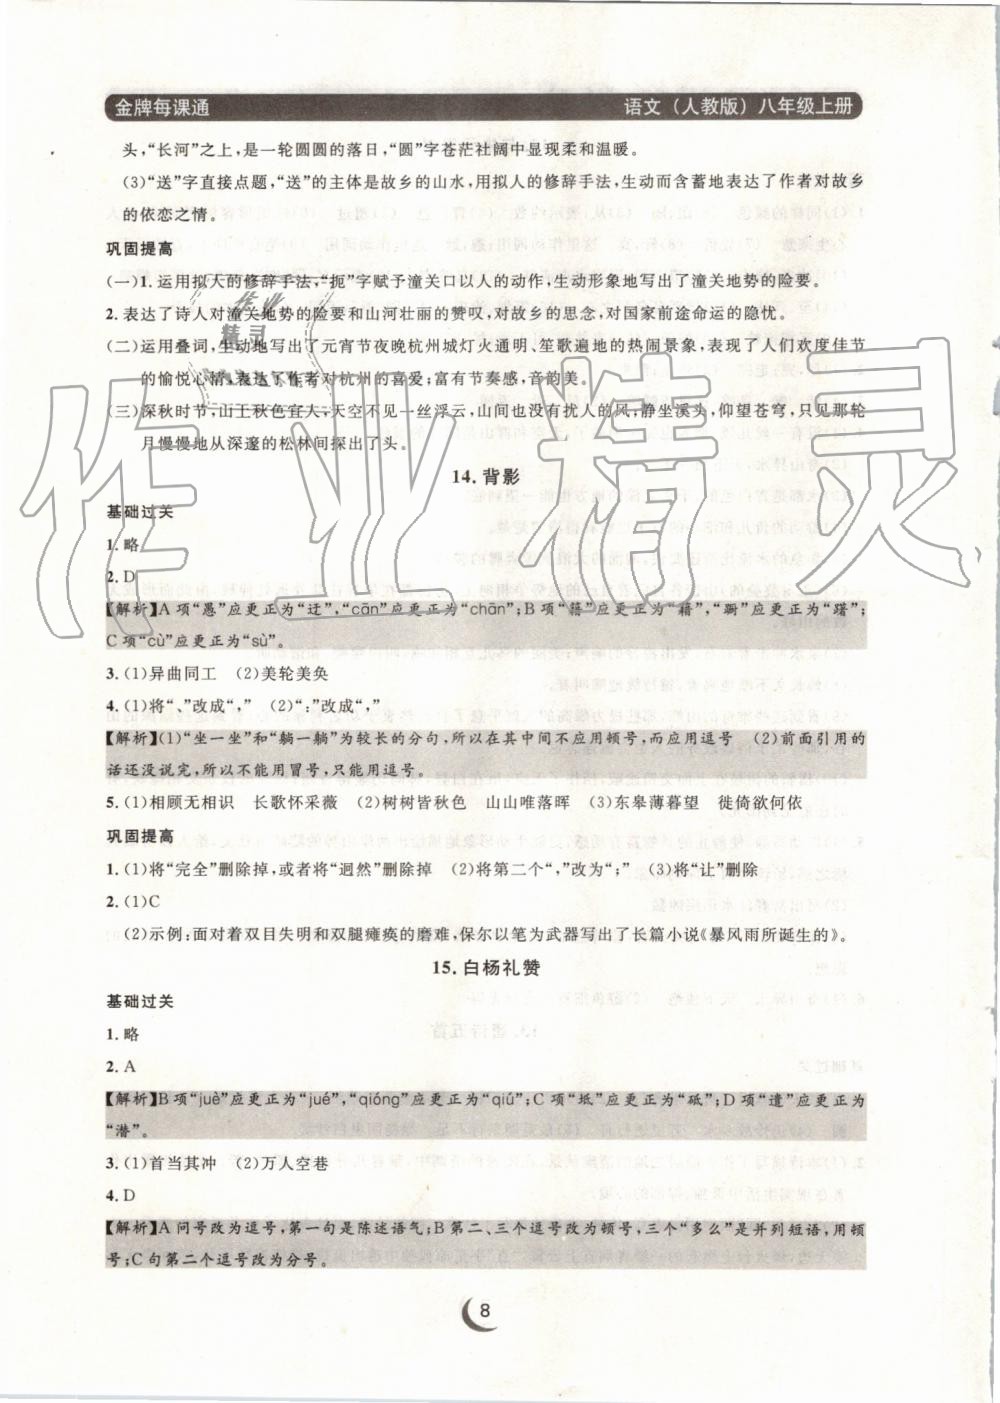 金牌每课通
语文（人教版）八年级上册
头,“长河”之上,是一轮圆圆的落日,“圆”字苍茫壮阔中显现柔和温暖。
(3)“送”字直接点题,“送”的主体是故乡的山水,用拟人的修辞手法,生动而含蓄地表达了作者对故乡
的依恋之情。
巩固提高
(一)1.运用拟人的修辞手法,“扼”字赋予潼关口以人的动作,生动形象地写出了潼关地势的险要。
2.表达了诗人对潼关地势的险要和山河壮丽的赞叹,对故乡的思念,对国家前途命运的隐忧。
(二)运用叠词,生动地写出了元宵节夜晚杭州城灯火通明、笙歌遍地的热闹景象,表现了人们欢度佳节
的愉悦心情,表达了作者对杭州的喜爱;富有节奏感,音韵美。
(三)深秋时节,山上秋色宜人,天空不见一丝浮云,山间也没有扰人的风,静坐溪头,仰望苍穹,只见那轮
月慢慢地从深邃的松林间探出了头。
14.背影
基础过关
1.略
2.D
[解析]A 项“愚”应更正为“迂”,“cān”应更正为“chān”;B 项“籍”应更正为“藉”,“蹰”应更正为“躇”;
C 项“cù”应更正为“sù”。
3.(1)异曲同工 (2)美轮美奂
4.(1)将“、”改成“,” (2)“:”改成“,”
[解析](1)“坐一坐”和“躺一躺”为较长的分句,所以在其中间不应用顿号,而应用逗号 (2)前面引用的
话还没说完,所以不能用冒号,只能用逗号。
5.(1)相顾无相识 长歌怀采薇 (2)树树皆秋色 山山唯落晖 (3)东皋薄暮望 徙倚欲何依
巩固提高
1.(1)将“完全”删除掉,或者将“迥然”删除掉 (2)将第二个“,”改为“;” (3)将“让”删除
2.(1)C
(2)示例:面对着双目失明和双腿瘫痪的磨难,保尔以笔为武器写出了长篇小说《暴风雨所诞生的》。
15.白杨礼赞
基础过关
1.略
2.A
[解析]B 项“juè”应更正为“jué”,“qióng”应更正为“qiú”;C 项“坻”应更正为“砥”;D 项“遣”应更正为
“潜”。
3.(1)首当其冲 (2)万人空巷
4.D
[解析]A 问号改为逗号,第一句是陈述语气;B 第二、三个逗号改为顿号,三个“多么”是并列短语,用顿
号;C 句第二个逗号改为分号。
8
作业精灵